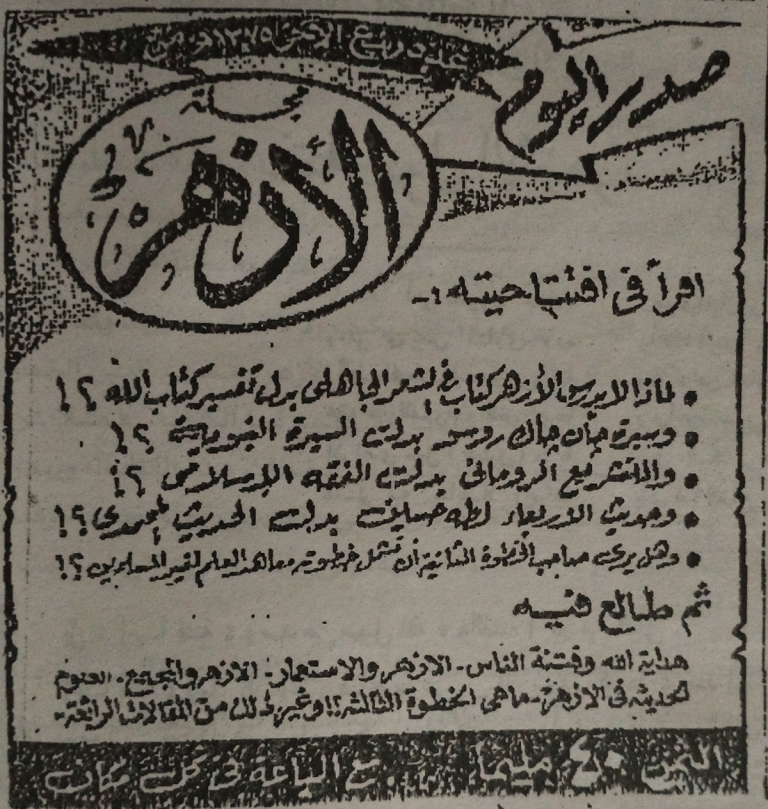 عدد ربيع الآخر ١٣٧٥ هـ من
صدر اليوم
مجلة
الأزهر
اقرأ فى افتتاحيته :ـ
• لماذا لا يدرس الأزهر كتاب فى الشعر الجاهلى بدل تفسير كتاب الله ؟!
• وسيرة جان جاك روسو بدلت السيرة النبوية ؟!
• والتشريع الرومانى بدلت الفقه الإسلامى ؟!
• وحديث الأربعاء لطه حسين بدلت الحديث المحمدى ؟!
• وهل يرى صاحب الخطوة الثانية أن تشمل خطوته معاهد العلم لغير المسلمين ؟!
ثم طالع فيه
هداية الله وفتنة الناس - الأزهر والاستعمار - الأزهر والمجتمع - العلوم
الحديثة فى الأزهر - ماهى الخطوة الثالثة !! وغير ذلك من المقالات الرائعة -
الثمن ٤٠ مليما مع الباعة فى كل مكان